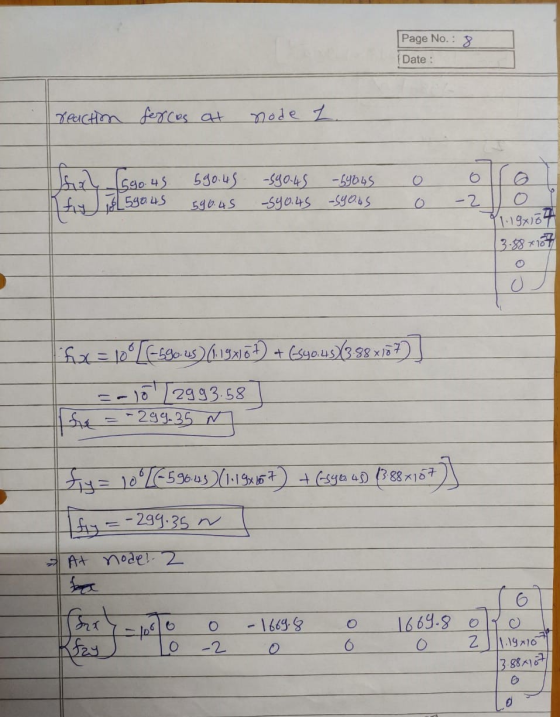 Page No. : 8
Date :
reaction forces at node 1
{f1x} = 10⁶ [590.45 590.45 -590.45 -590.45 0 0] {0
{f1y} [590.45 590.45 -590.45 -590.45 0 -2] 0
1.19×10⁻⁷
3.88×10⁻⁷
0
0}
f1x = 10⁶ [(-590.45)(1.19×10⁻⁷) + (-590.45)(3.88×10⁻⁷)]
= -10⁻¹ [2993.58]
f1x = -299.35 N
f1y = 10⁶ [(-590.45)(1.19×10⁻⁷) + (-590.45)(3.88×10⁻⁷)]
f1y = -299.35 N
⇒ At node: 2
{f2x} = 10⁶ [0 0 -1669.8 0 1669.8 0] {0
{f2y} [0 -2 0 0 0 2] 0
1.19×10⁻⁷
3.88×10⁻⁷
0
0}